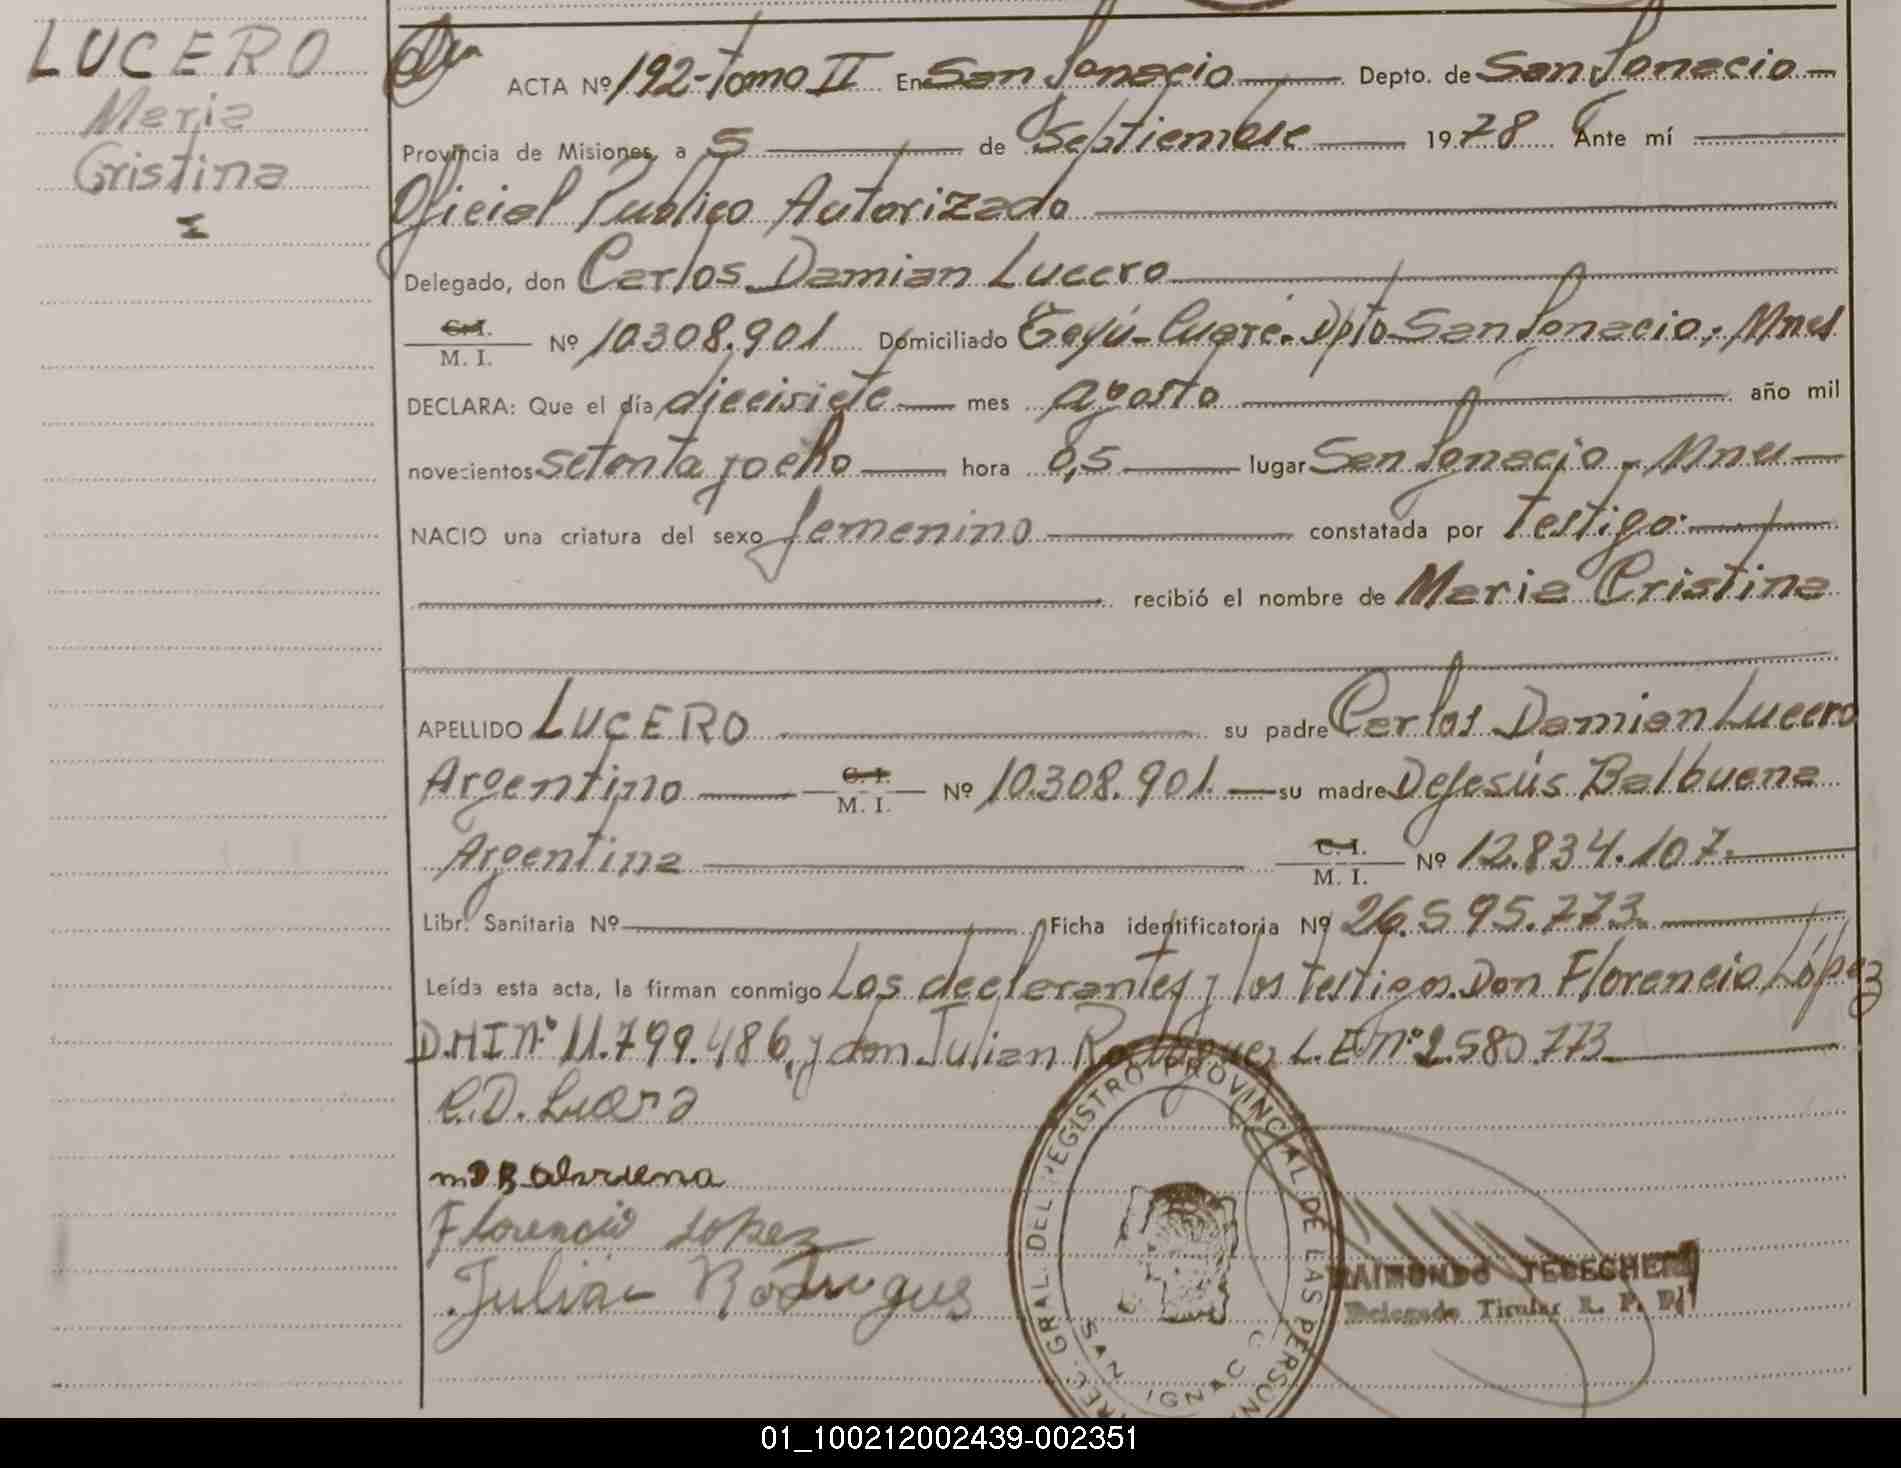 LUCERO
Maria
Cristina
ACTA Nº 192-Tomo II En San Ignacio Depto. de San Ignacio
Provincia de Misiones, a 5 de Septiembre 1978 Ante mí
Oficial Público Autorizado
Delegado, don Carlos Damian Lucero
C. I.
M. I. Nº 10.308.901 Domiciliado Teyú-Cuaré. Dpto San Ignacio, Mnes
DECLARA: Que el día diecisiete mes agosto año mil
novecientos setenta y ocho hora 0,5 lugar San Ignacio - Mnes
NACIO una criatura del sexo femenino constatada por Testigo
recibió el nombre de Maria Cristina
APELLIDO LUCERO su padre Carlos Damian Lucero
Argentino C. I. M. I. Nº 10.308.901. su madre DeJesús Balbuena
Argentina C. I. M. I. Nº 12.834.107.
Libr. Sanitaria Nº Ficha identificatoria Nº 26.595.773.
Leída esta acta, la firman conmigo Los declarantes y los testigos. Don Florencio López
D.N.I Nº 11.799.486, y don Julian Rodriguez L.E. Nº 2.580.773
C.D. Lucero
m D Balbuena
Florencio Lopez
Julian Rodrigues
DIREC. GRAL. DEL REGISTRO PROVINCIAL DE LAS PERSONAS
SAN IGNACIO
RAIMUNDO
Delegado Titular R. P. P.
01_100212002439-002351